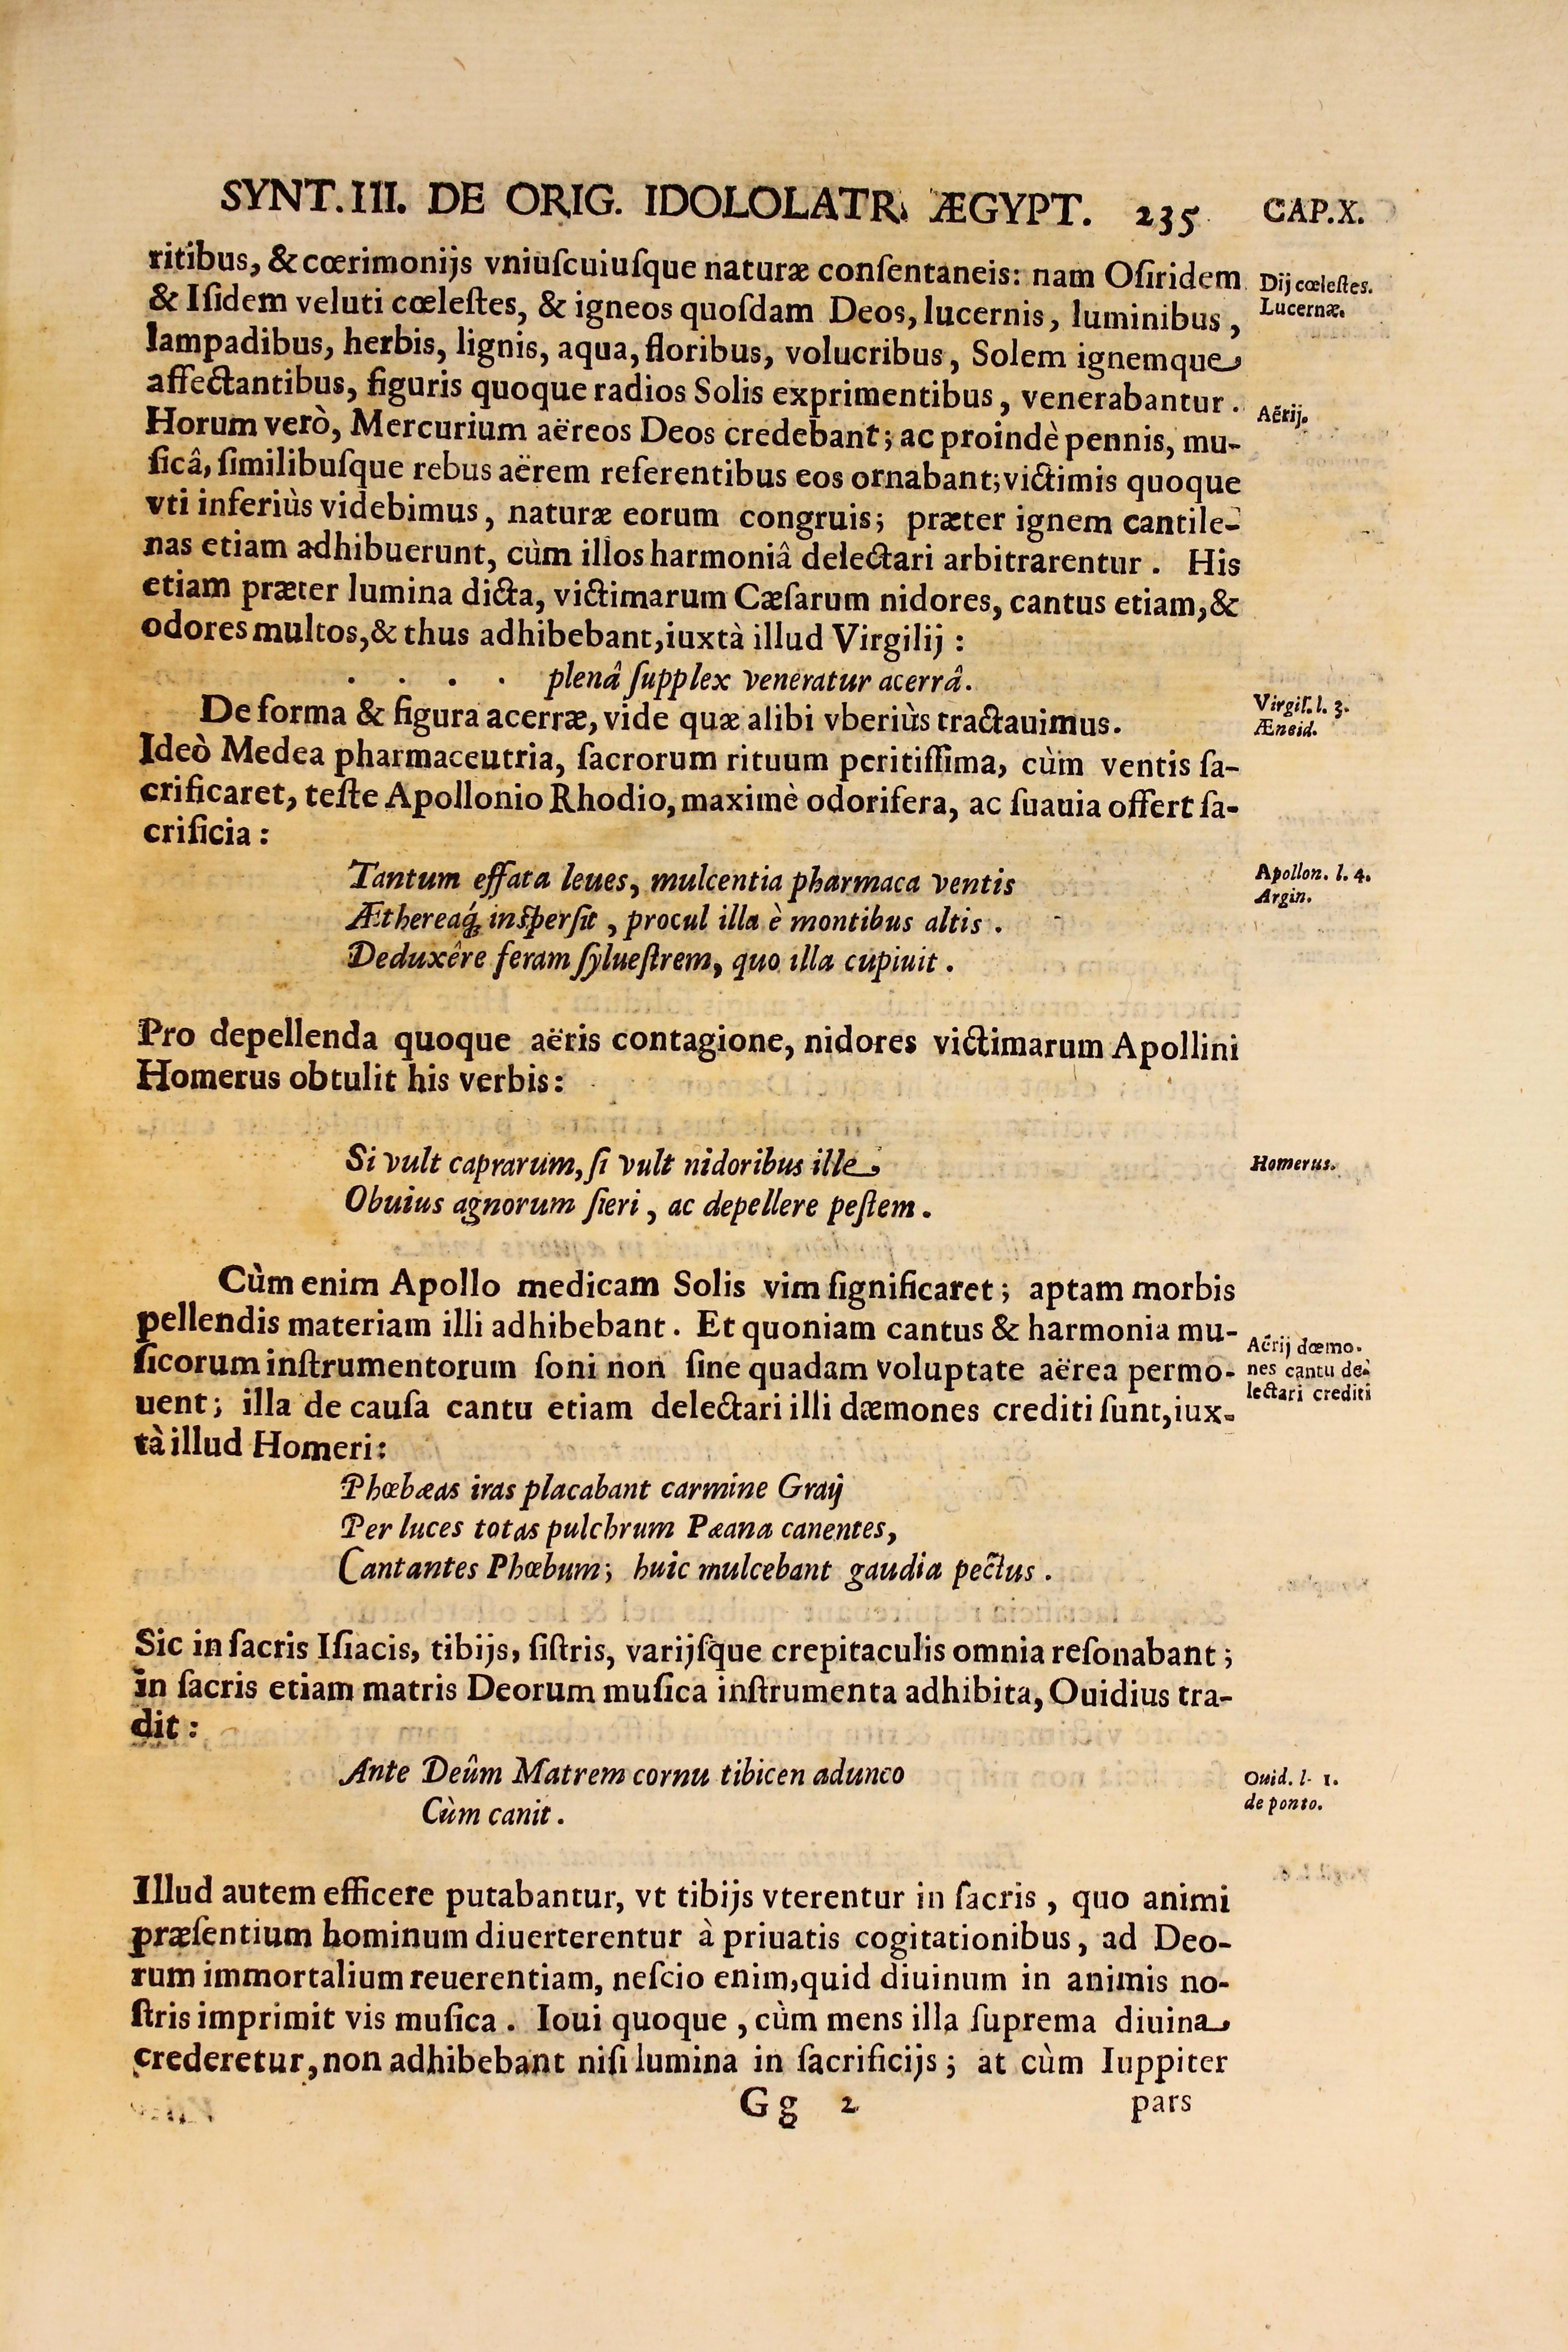 SYNT. III. DE ORIG. IDOLOLATR. ÆGYPT. 235 CAP. X.
ritibus, & cœrimonijs vniuſcuiuſque naturæ conſentaneis: nam Oſiridem
Dij cœleſtes.
& Iſidem veluti cœleſtes, & igneos quoſdam Deos, lucernis, luminibus,
Lucernæ.
lampadibus, herbis, lignis, aqua, floribus, volucribus, Solem ignemque
affectantibus, figuris quoque radios Solis exprimentibus, venerabantur.
Aërij.
Horum verò, Mercurium aëreos Deos credebant; ac proindè pennis, mu-
ſicâ, ſimilibuſque rebus aërem referentibus eos ornabant; victimis quoque
vti inferiùs videbimus, naturæ eorum congruis; præter ignem cantile-
nas etiam adhibuerunt, cùm illos harmoniâ delectari arbitrarentur. His
etiam præter lumina dicta, victimarum Cæſarum nidores, cantus etiam, &
odores multos, & thus adhibebant, iuxtà illud Virgilij:
. . . . plenâ ſupplex veneratur acerrâ.
Virgil. l. 3.
Æneid.
De forma & figura acerræ, vide quæ alibi vberiùs tractauimus.
Ideò Medea pharmaceutria, ſacrorum rituum peritiſſima, cùm ventis ſa-
crificaret, teſte Apollonio Rhodio, maximè odorifera, ac ſuauia offert ſa-
crificia:
Tantum effata leues, mulcentia pharmaca ventis
Apollon. l. 4.
Argin.
Æthereaq́; inſperſit, procul illa è montibus altis.
Deduxêre feram ſylueſtrem, quo illa cupiuit.
Pro depellenda quoque aëris contagione, nidores victimarum Apollini
Homerus obtulit his verbis:
Si vult caprarum, ſi vult nidoribus ille
Homerus.
Obuius agnorum fieri, ac depellere peſtem.
Cùm enim Apollo medicam Solis vim ſignificaret; aptam morbis
pellendis materiam illi adhibebant. Et quoniam cantus & harmonia mu-
Aërij dæmo-
nes cantu de-
lectari crediti
ſicorum inſtrumentorum ſoni non ſine quadam voluptate aërea permo-
uent; illa de cauſa cantu etiam delectari illi dæmones crediti ſunt, iux-
tà illud Homeri:
Phœbæas iras placabant carmine Graij
Per luces totas pulchrum Pæana canentes,
Cantantes Phœbum; huic mulcebant gaudia pectus.
Sic in ſacris Iſiacis, tibijs, ſiſtris, varijſque crepitaculis omnia reſonabant;
in ſacris etiam matris Deorum muſica inſtrumenta adhibita, Ouidius tra-
dit:
Ante Deûm Matrem cornu tibicen adunco
Ouid. l. 1.
de ponto.
Cùm canit.
Illud autem efficere putabantur, vt tibijs vterentur in ſacris, quo animi
præſentium hominum diuerterentur à priuatis cogitationibus, ad Deo-
rum immortalium reuerentiam, neſcio enim, quid diuinum in animis no-
ſtris imprimit vis muſica. Ioui quoque, cùm mens illa ſuprema diuina
crederetur, non adhibebant niſi lumina in ſacrificijs; at cùm Iuppiter
Gg 2 pars